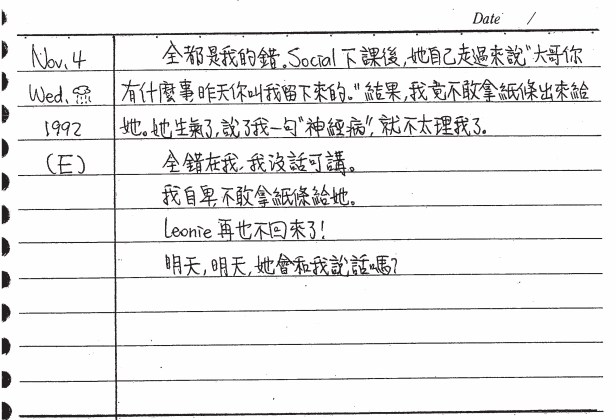 Date /
Nov. 4 全都是我的錯。Social 下課後，她自己走過來說"大哥你
Wed. 有什麼事昨天你叫我留下來的。"結果，我竟不敢拿紙條出來給
1992 她。她生氣了，說了我一句"神經病"，就不太理我了。
(E) 全錯在我，我沒話可講。
我自卑，不敢拿紙條給她。
Leonie 再也不回來了！
明天，明天，她會和我說話嗎？